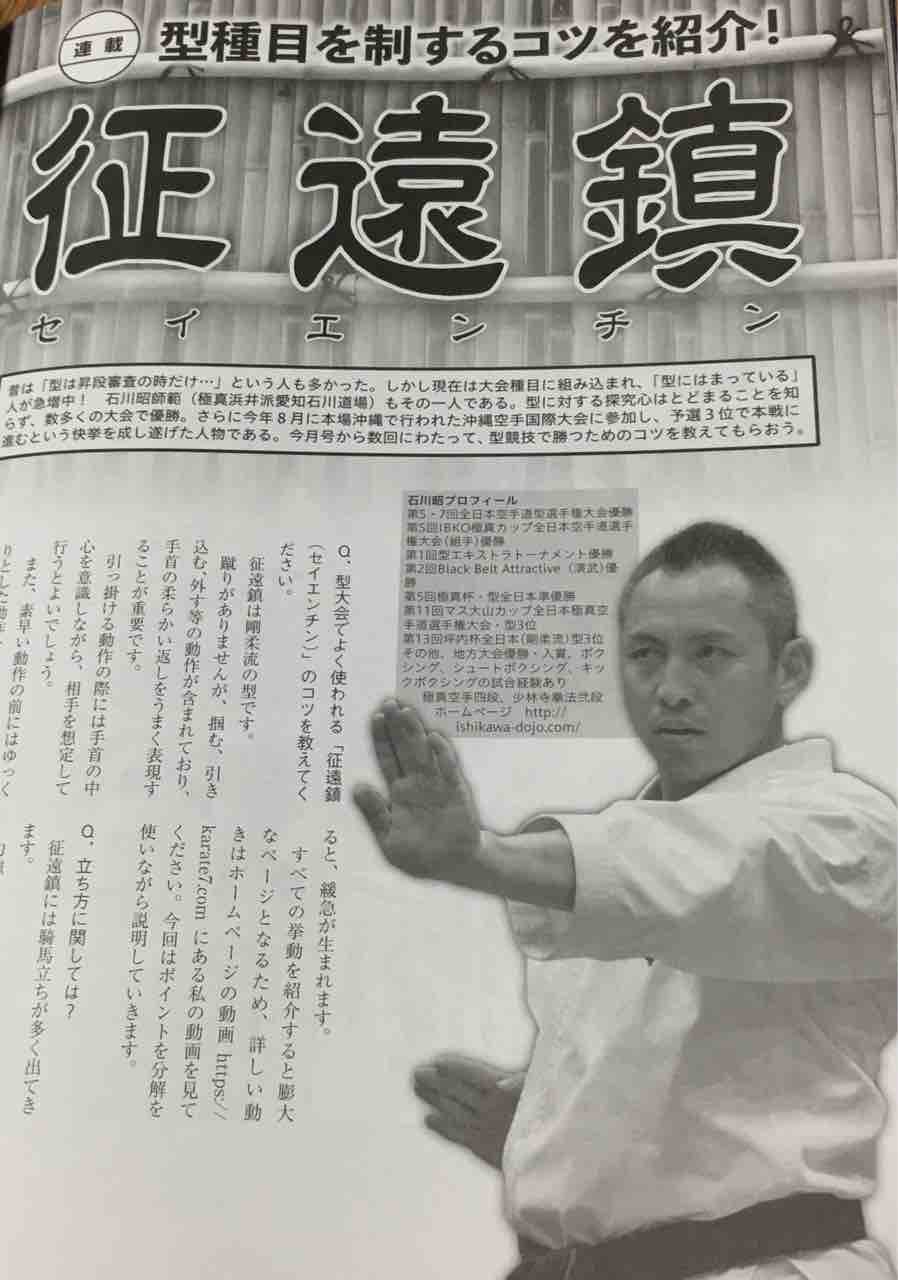 連載
型種目を制するコツを紹介！
征遠鎮
セイエンチン
昔は「型は昇段審査の時だけ…」という人も多かった。しかし現在は大会種目に組み込まれ、「型にはまっている」
人が急増中！　石川昭師範（極真浜井派愛知石川道場）もその一人である。型に対する探究心はとどまることを知
らず、数多くの大会で優勝。さらに今年８月に本場沖縄で行われた沖縄空手国際大会に参加し、予選３位で本戦に
進むという快挙を成し遂げた人物である。今月号から数回にわたって、型競技で勝つためのコツを教えてもらおう。
石川昭プロフィール
第5・7回全日本空手道型選手権大会優勝
第5回IBKO極真カップ全日本空手道選手
権大会（組手）優勝
第1回型エキストラトーナメント優勝
第2回Black Belt Attractive（演武）優
勝
第5回極真杯・型全日本準優勝
第11回マス大山カップ全日本極真空
手道選手権大会・型3位
第13回坪内杯全日本（剛柔流）型3位
その他、地方大会優勝・入賞、ボク
シング、シュートボクシング、キッ
クボクシングの試合経験あり
極真空手四段、少林寺拳法弐段
ホームページ　http://
ishikawa-dojo.com/
Q、型大会でよく使われる「征遠鎮
（セイエンチン）」のコツを教えてく
ださい。
征遠鎮は剛柔流の型です。
蹴りがありませんが、掴む、引き
込む、外す等の動作が含まれており、
手首の柔らかい返しをうまく表現す
ることが重要です。
引っ掛ける動作の際には手首の中
心を意識しながら、相手を想定して
行うとよいでしょう。
また、素早い動作の前にはゆっく
りとした動作
ると、緩急が生まれます。
すべての挙動を紹介すると膨大
なページとなるため、詳しい動
きはホームページの動画 https://
karate7.com にある私の動画を見て
ください。今回はポイントを分解を
使いながら説明していきます。
Q、立ち方に関しては？
征遠鎮には騎馬立ちが多く出てき
ます。